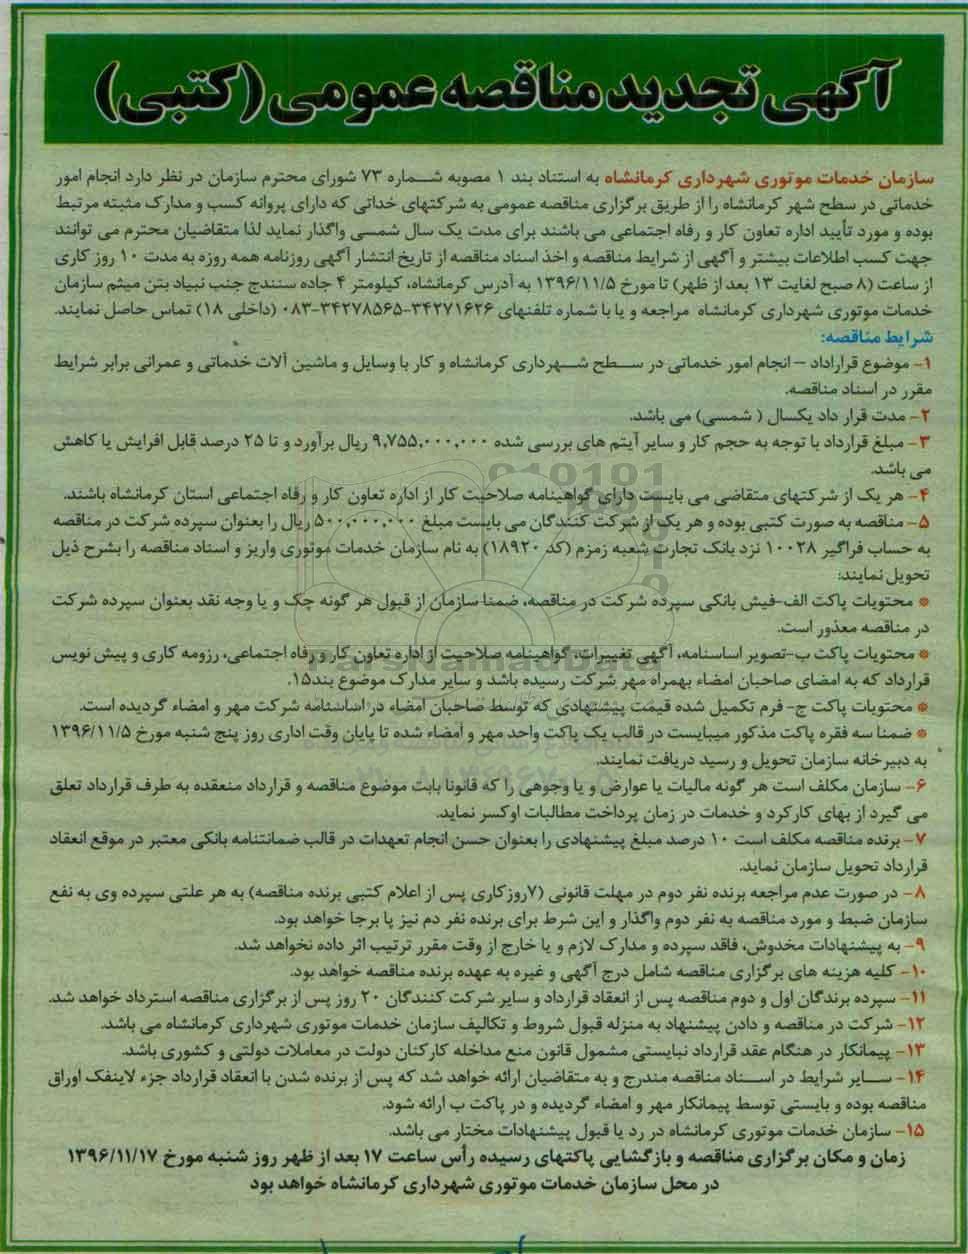 آگهی تجدید مناقصه عمومی (کتبی)
سازمان خدمات موتوری شهرداری کرمانشاه به استناد بند ۱ مصوبه شماره ۷۳ شورای محترم سازمان در نظر دارد انجام امور
خدماتی در سطح شهر کرمانشاه را از طریق برگزاری مناقصه عمومی به شرکتهای خداتی که دارای پروانه کسب و مدارک مثبته مرتبط
بوده و مورد تأیید اداره تعاون کار و رفاه اجتماعی می باشند برای مدت یک سال شمسی واگذار نماید لذا متقاضیان محترم می توانند
جهت کسب اطلاعات بیشتر و آگهی از شرایط مناقصه و اخذ اسناد مناقصه از تاریخ انتشار آگهی روزنامه همه روزه به مدت ۱۰ روز کاری
از ساعت (۸ صبح لغایت ۱۳ بعد از ظهر) تا مورخ ۱۳۹۶/۱۱/۵ به آدرس کرمانشاه، کیلومتر ۴ جاده سنندج جنب نبیاد بتن میثم سازمان
خدمات موتوری شهرداری کرمانشاه مراجعه و یا با شماره تلفنهای ۳۴۲۷۱۶۲۶-۳۴۲۷۸۵۶۵-۰۸۳ (داخلی ۱۸) تماس حاصل نمایند.
شرایط مناقصه:
۱- موضوع قراراداد – انجام امور خدماتی در سطح شهرداری کرمانشاه و کار با وسایل و ماشین آلات خدماتی و عمرانی برابر شرایط
مقرر در اسناد مناقصه.
۲- مدت قرار داد یکسال ( شمسی) می باشد.
۳- مبلغ قرارداد با توجه به حجم کار و سایر آیتم های بررسی شده ۹,۷۵۵,۰۰۰,۰۰۰ ریال برآورد و تا ۲۵ درصد قابل افرایش یا کاهش
می باشد.
۴- هر یک از شرکتهای متقاضی می بایست دارای گواهینامه صلاحیت کار از اداره تعاون کار و رفاه اجتماعی استان کرمانشاه باشند.
۵- مناقصه به صورت کتبی بوده و هر یک از شرکت کنندگان می بایست مبلغ ۵۰۰,۰۰۰,۰۰۰ ریال را بعنوان سپرده شرکت در مناقصه
به حساب فراگیر ۱۰۰۲۸ نزد بانک تجارت شعبه زمزم (کد ۱۸۹۲۰) به نام سازمان خدمات موتوری واریز و اسناد مناقصه را بشرح ذیل
تحویل نمایند:
* محتویات پاکت الف-فیش بانکی سپرده شرکت در مناقصه، ضمنا سازمان از قبول هر گونه چک و یا وجه نقد بعنوان سپرده شرکت
در مناقصه معذور است.
* محتویات پاکت ب-تصویر اساسنامه، آگهی تغییرات، گواهینامه صلاحیت از اداره تعاون کار و رفاه اجتماعی، رزومه کاری و پیش نویس
قرارداد که به امضای صاحبان امضاء بهمراه مهر شرکت رسیده باشد و سایر مدارک موضوع بند۱۵.
* محتویات پاکت ج- فرم تکمیل شده قیمت پیشنهادی که توسط صاحبان امضاء در اساسنامه شرکت مهر و امضاء گردیده است.
* ضمنا سه فقره پاکت مذکور میبایست در قالب یک پاکت واحد مهر و امضاء شده تا پایان وقت اداری روز پنج شنبه مورخ ۱۳۹۶/۱۱/۵
به دبیرخانه سازمان تحویل و رسید دریافت نمایند.
۶- سازمان مکلف است هر گونه مالیات یا عوارض و یا وجوهی را که قانونا بابت موضوع مناقصه و قرارداد منعقده به طرف قرارداد تعلق
می گیرد از بهای کارکرد و خدمات در زمان پرداخت مطالبات اوکسر نماید.
۷- برنده مناقصه مکلف است ۱۰ درصد مبلغ پیشنهادی را بعنوان حسن انجام تعهدات در قالب ضمانتنامه بانکی معتبر در موقع انعقاد
قرارداد تحویل سازمان نماید.
۸- در صورت عدم مراجعه برنده نفر دوم در مهلت قانونی (۷روزکاری پس از اعلام کتبی برنده مناقصه) به هر علتی سپرده وی به نفع
سازمان ضبط و مورد مناقصه به نفر دوم واگذار و این شرط برای برنده نفر دم نیز پا برجا خواهد بود.
۹- به پیشنهادات مخدوش، فاقد سپرده و مدارک لازم و یا خارج از وقت مقرر ترتیب اثر داده نخواهد شد.
۱۰- کلیه هزینه های برگزاری مناقصه شامل درج آگهی و غیره به عهده برنده مناقصه خواهد بود.
۱۱- سپرده برندگان اول و دوم مناقصه پس از انعقاد قرارداد و سایر شرکت کنندگان ۲۰ روز پس از برگزاری مناقصه استرداد خواهد شد.
۱۲- شرکت در مناقصه و دادن پیشنهاد به منزله قبول شروط و تکالیف سازمان خدمات موتوری شهرداری کرمانشاه می باشد.
۱۳- پیمانکار در هنگام عقد قرارداد نبایستی مشمول قانون منع مداخله کارکنان دولت در معاملات دولتی و کشوری باشد.
۱۴- سایر شرایط در اسناد مناقصه مندرج و به متقاضیان ارائه خواهد شد که پس از برنده شدن با انعقاد قرارداد جزء لاینفک اوراق
مناقصه بوده و بایستی توسط پیمانکار مهر و امضاء گردیده و در پاکت ب ارائه شود.
۱۵- سازمان خدمات موتوری کرمانشاه در رد یا قبول پیشنهادات مختار می باشد.
زمان و مکان برگزاری مناقصه و بازگشایی پاکتهای رسیده رأس ساعت ۱۷ بعد از ظهر روز شنبه مورخ ۱۳۹۶/۱۱/۱۷
در محل سازمان خدمات موتوری شهرداری کرمانشاه خواهد بود